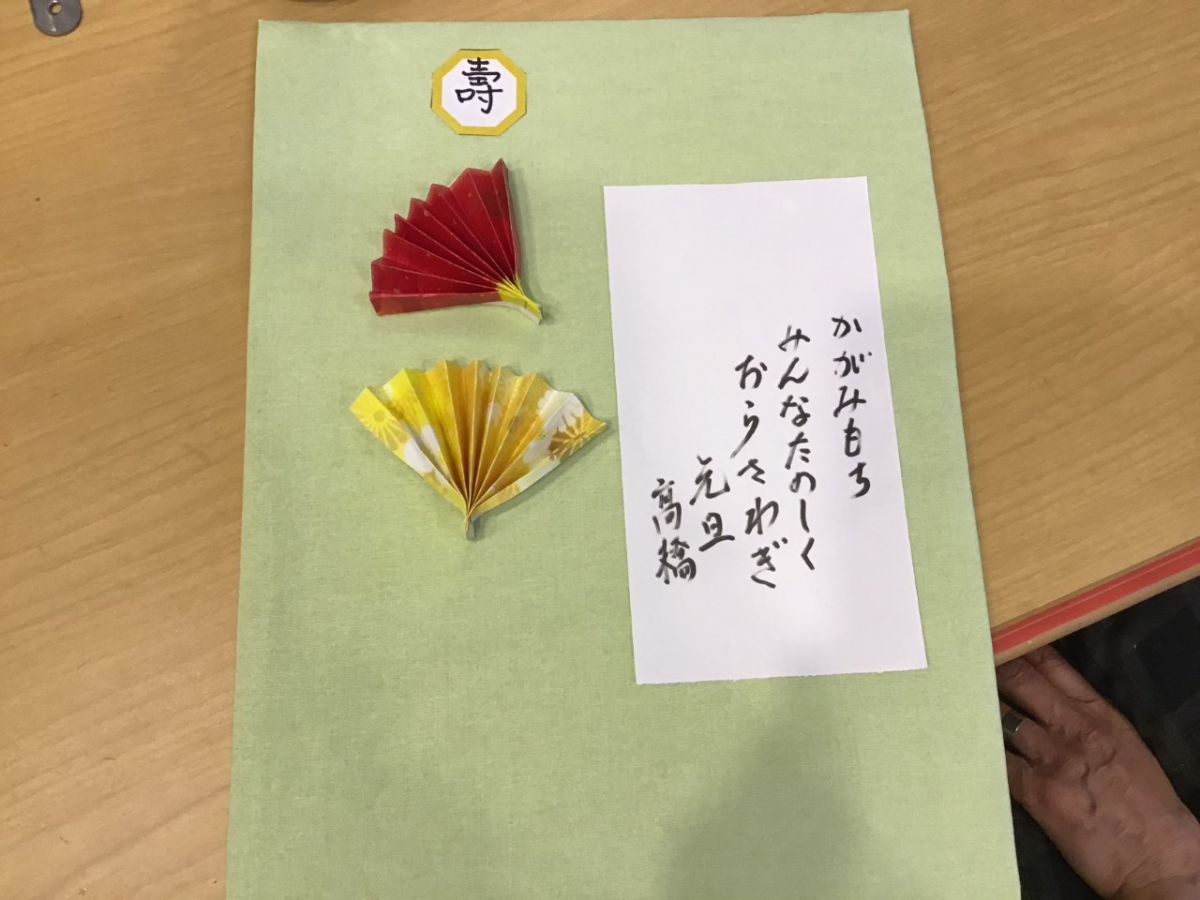 壽
かがみもち
みんなたのしく
おらさわぎ
元旦
高橋